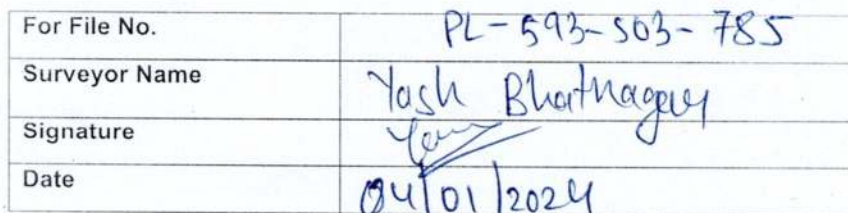 For File No. PL-593-503-785
Surveyor Name Yash Bhatnagar
Signature
Date 04/01/2024